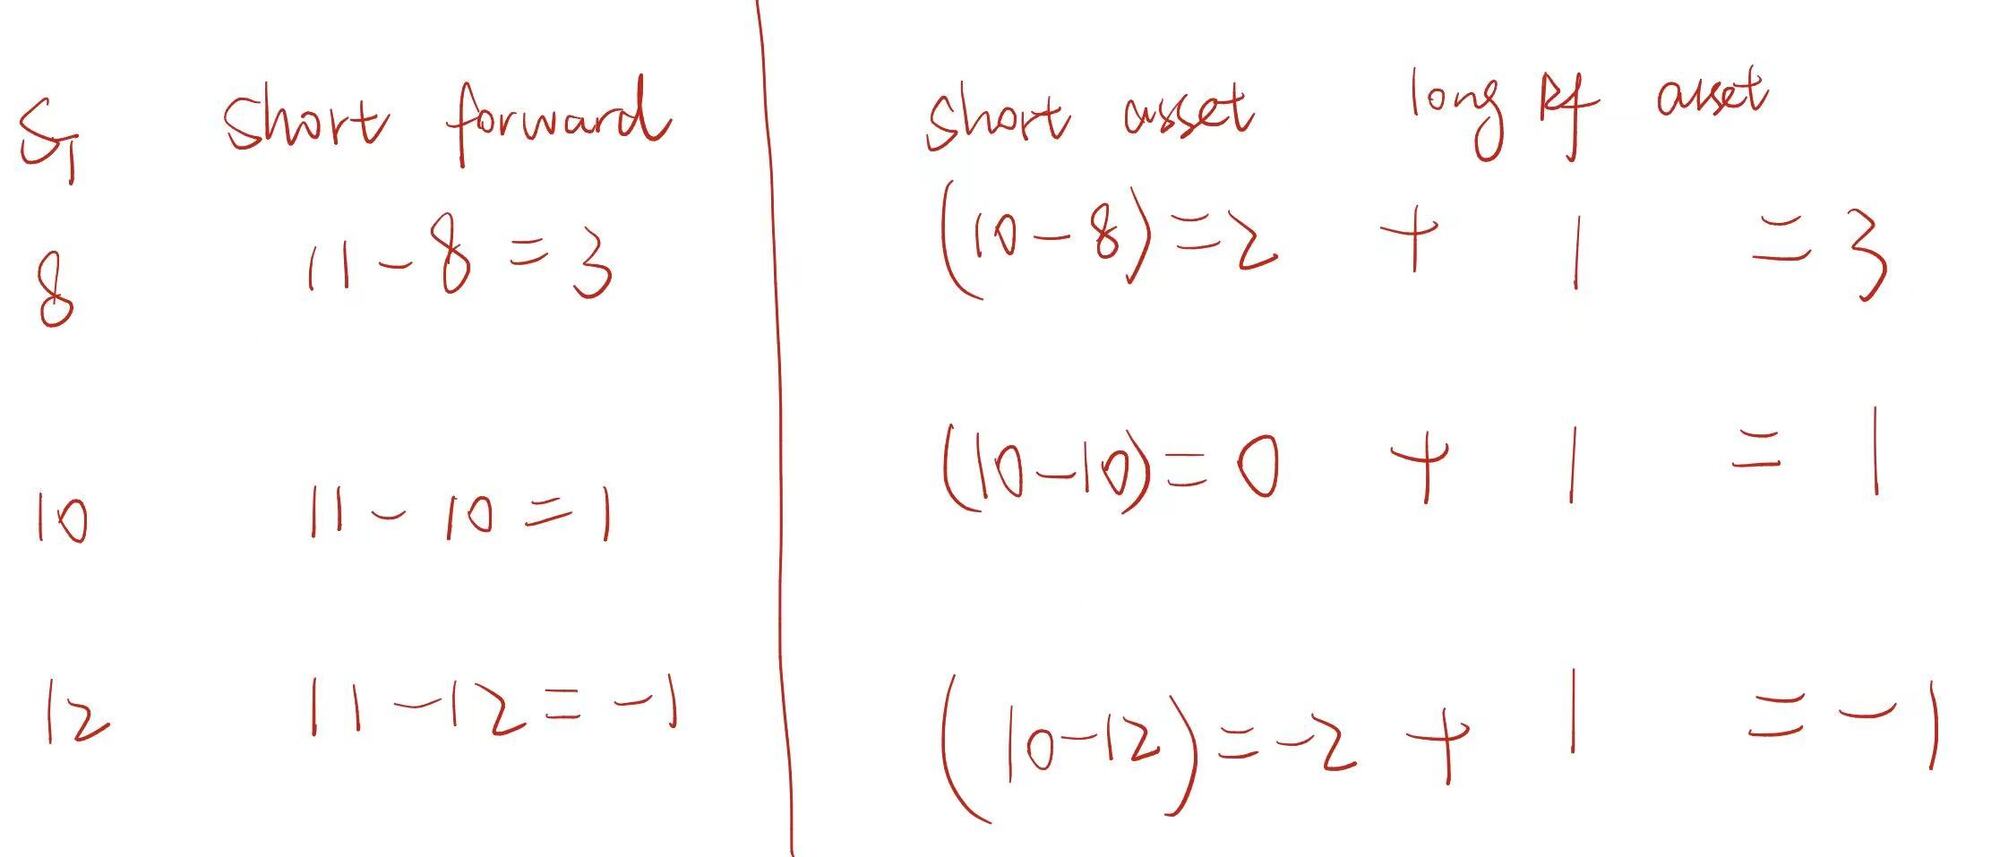 S₁ short forward short asset long Rf asset
8 11-8=3 (10-8)=2 + 1 =3
10 11-10=1 (10-10)=0 + 1 = 1
12 11-12=-1 (10-12)=-2 + 1 =-1